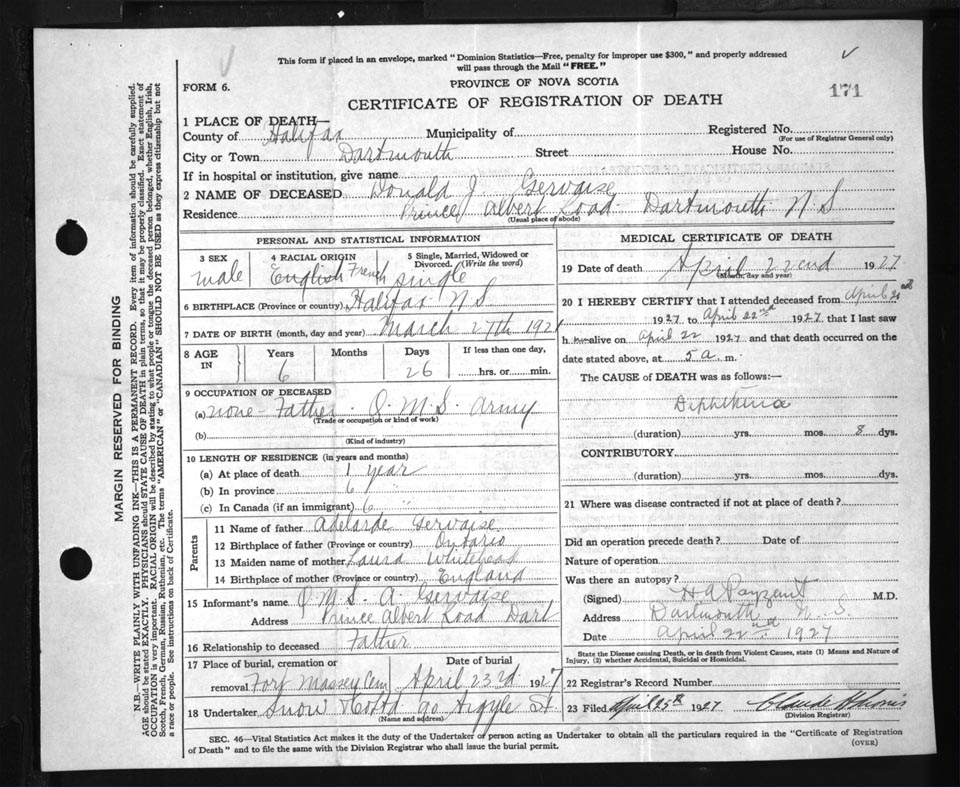 This form if placed in an envelope, marked "Dominion Statistics—Free, penalty for improper use $300," and properly addressed
will pass through the Mail "FREE."
FORM 6.
PROVINCE OF NOVA SCOTIA
171
CERTIFICATE OF REGISTRATION OF DEATH
1 PLACE OF DEATH—
County of Halifax Municipality of Registered No.
(For use of Registrar General only)
City or Town Dartmouth Street House No.
If in hospital or institution, give name
2 NAME OF DECEASED Donald J Gervaise
Residence Prince Albert Road Dartmouth N S
(Usual place of abode)
PERSONAL AND STATISTICAL INFORMATION
3 SEX male
4 RACIAL ORIGIN English French
5 Single, Married, Widowed or Divorced. (Write the word) single
6 BIRTHPLACE (Province or country) Halifax N S
7 DATE OF BIRTH (month, day and year) March 27th 1921
8 AGE IN Years 6 Months Days 26 If less than one day, hrs. or min.
9 OCCUPATION OF DECEASED
(a) none - Father - Q M S Army
(Trade or occupation or kind of work)
(b)
(Kind of industry)
10 LENGTH OF RESIDENCE (in years and months)
(a) At place of death 1 year
(b) In province 6 "
(c) In Canada (if an immigrant) 6
Parents
11 Name of father Adelarde Gervaise
12 Birthplace of father (Province or country) Ontario
13 Maiden name of mother Laura Whitehead
14 Birthplace of mother (Province or country) England
15 Informant's name Q M S A Gervaise
Address Prince Albert Road Dart
16 Relationship to deceased Father
17 Place of burial, cremation or removal Fort Massey Cem
Date of burial April 23d 1927
18 Undertaker Snow & Co Ltd 90 Argyle St
(Name and address)
MEDICAL CERTIFICATE OF DEATH
19 Date of death April 22end 1927
(Month, day and year)
20 I HEREBY CERTIFY that I attended deceased from April 20th
1927 to April 22nd 1927 that I last saw
h im alive on April 22 1927 and that death occurred on the
date stated above, at 5 a. m.
The CAUSE of DEATH was as follows:—
Diphtheria
(duration) yrs. mos. 8 dys.
CONTRIBUTORY
(duration) yrs. mos. dys.
21 Where was disease contracted if not at place of death?
Did an operation precede death? Date of
Nature of operation
Was there an autopsy?
(Signed) H A Payzant M.D.
Address Dartmouth N. S.
Date April 22nd 1927
State the Disease causing Death, or in death from Violent Causes, state (1) Means and Nature of
Injury, (2) whether Accidental, Suicidal or Homicidal.
22 Registrar's Record Number
23 Filed April 25th 1927
(Division Registrar)
SEC. 46—Vital Statistics Act makes it the duty of the Undertaker or person acting as Undertaker to obtain all the particulars required in the "Certificate of Registration
of Death" and to file the same with the Division Registrar who shall issue the burial permit.
(OVER)
MARGIN RESERVED FOR BINDING
N.B.—WRITE PLAINLY WITH UNFADING INK—THIS IS A PERMANENT RECORD. Every item of information should be carefully supplied.
AGE should be stated EXACTLY. PHYSICIANS should STATE CAUSE OF DEATH in plain terms, so that it may be properly classified. Exact statement of
OCCUPATION is very important. RACIAL ORIGIN will be described by stating to what people or tongue the deceased person belonged, whether English, Irish,
Scotch, French, German, Russian, Ruthenian, etc. The terms "AMERICAN" or "CANADIAN" SHOULD NOT BE USED as they express citizenship but not
a race or people. See instructions on back of Certificate.